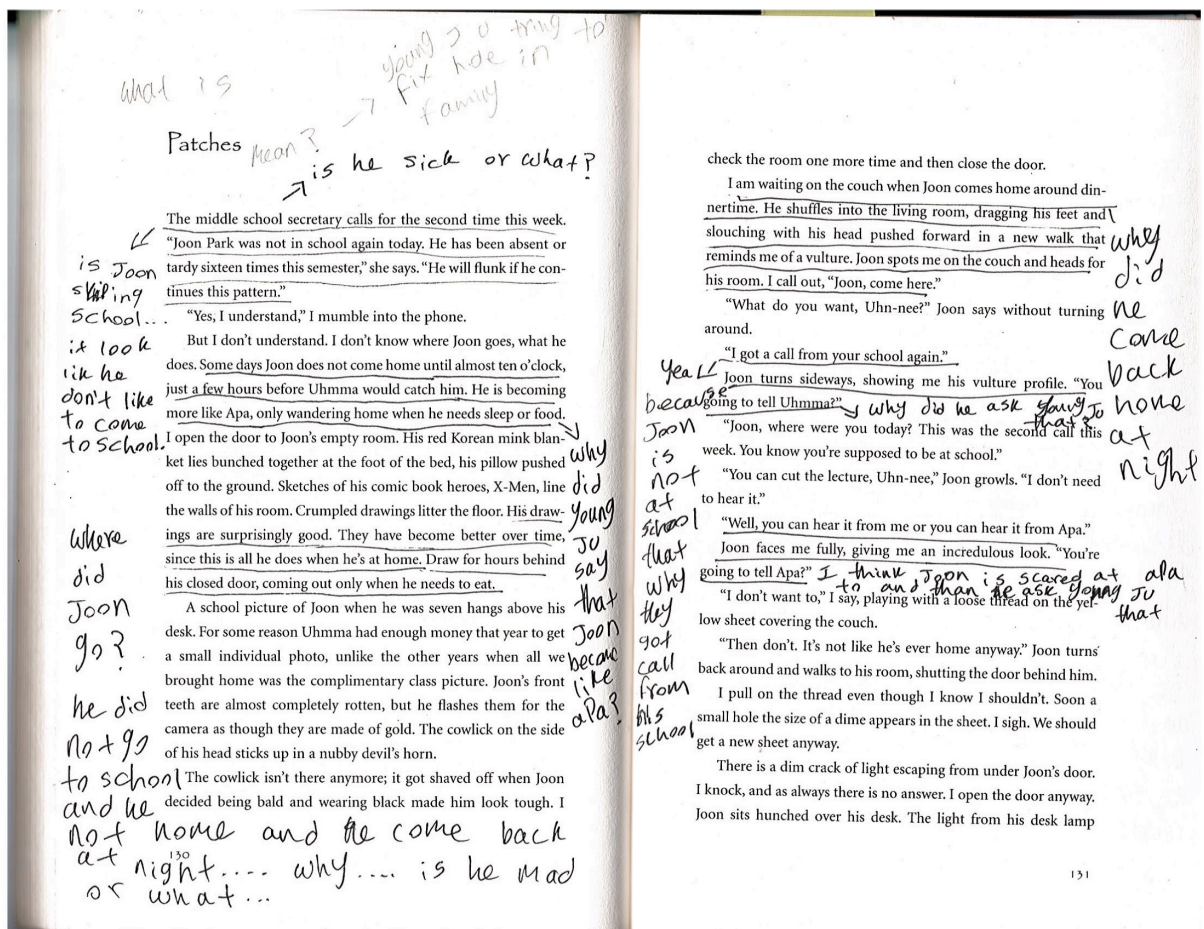 what is
young JU tring to
fix hole in
family
Patches
mean?
is he sick or what?
The middle school secretary calls for the second time this week.
"Joon Park was not in school again today. He has been absent or
tardy sixteen times this semester," she says. "He will flunk if he con-
tinues this pattern."
"Yes, I understand," I mumble into the phone.
But I don't understand. I don't know where Joon goes, what he
does. Some days Joon does not come home until almost ten o'clock,
just a few hours before Uhmma would catch him. He is becoming
more like Apa, only wandering home when he needs sleep or food.
I open the door to Joon's empty room. His red Korean mink blan-
ket lies bunched together at the foot of the bed, his pillow pushed
off to the ground. Sketches of his comic book heroes, X-Men, line
the walls of his room. Crumpled drawings litter the floor. His draw-
ings are surprisingly good. They have become better over time,
since this is all he does when he's at home. Draw for hours behind
his closed door, coming out only when he needs to eat.
A school picture of Joon when he was seven hangs above his
desk. For some reason Uhmma had enough money that year to get
a small individual photo, unlike the other years when all we
brought home was the complimentary class picture. Joon's front
teeth are almost completely rotten, but he flashes them for the
camera as though they are made of gold. The cowlick on the side
of his head sticks up in a nubby devil's horn.
The cowlick isn't there anymore; it got shaved off when Joon
decided being bald and wearing black made him look tough. I
130
is Joon
skiping
school...
it look
lik he
don't like
to come
to school.
where
did
Joon
go?
he did
not go
to school
and he
not home and he come back
at night.... why.... is he mad
or what...
why
did
young
JU
say
that
Joon
became
like
apa?
check the room one more time and then close the door.
I am waiting on the couch when Joon comes home around din-
nertime. He shuffles into the living room, dragging his feet and
slouching with his head pushed forward in a new walk that
reminds me of a vulture. Joon spots me on the couch and heads for
his room. I call out, "Joon, come here."
"What do you want, Uhn-nee?" Joon says without turning
around.
"I got a call from your school again."
Joon turns sideways, showing me his vulture profile. "You
going to tell Uhmma?"
why did he ask young JU
that?
"Joon, where were you today? This was the second call this
week. You know you're supposed to be at school."
"You can cut the lecture, Uhn-nee," Joon growls. "I don't need
to hear it."
"Well, you can hear it from me or you can hear it from Apa."
Joon faces me fully, giving me an incredulous look. "You're
going to tell Apa?"
I think Joon is scared at apa
to and than he ask young JU
that
"I don't want to," I say, playing with a loose thread on the yel-
low sheet covering the couch.
"Then don't. It's not like he's ever home anyway." Joon turns
back around and walks to his room, shutting the door behind him.
I pull on the thread even though I know I shouldn't. Soon a
small hole the size of a dime appears in the sheet. I sigh. We should
get a new sheet anyway.
There is a dim crack of light escaping from under Joon's door.
I knock, and as always there is no answer. I open the door anyway.
Joon sits hunched over his desk. The light from his desk lamp
131
Yea
because
Joon
is
not
at
school
that
why
they
got
call
from
his
school
why
did
he
come
back
home
at
night